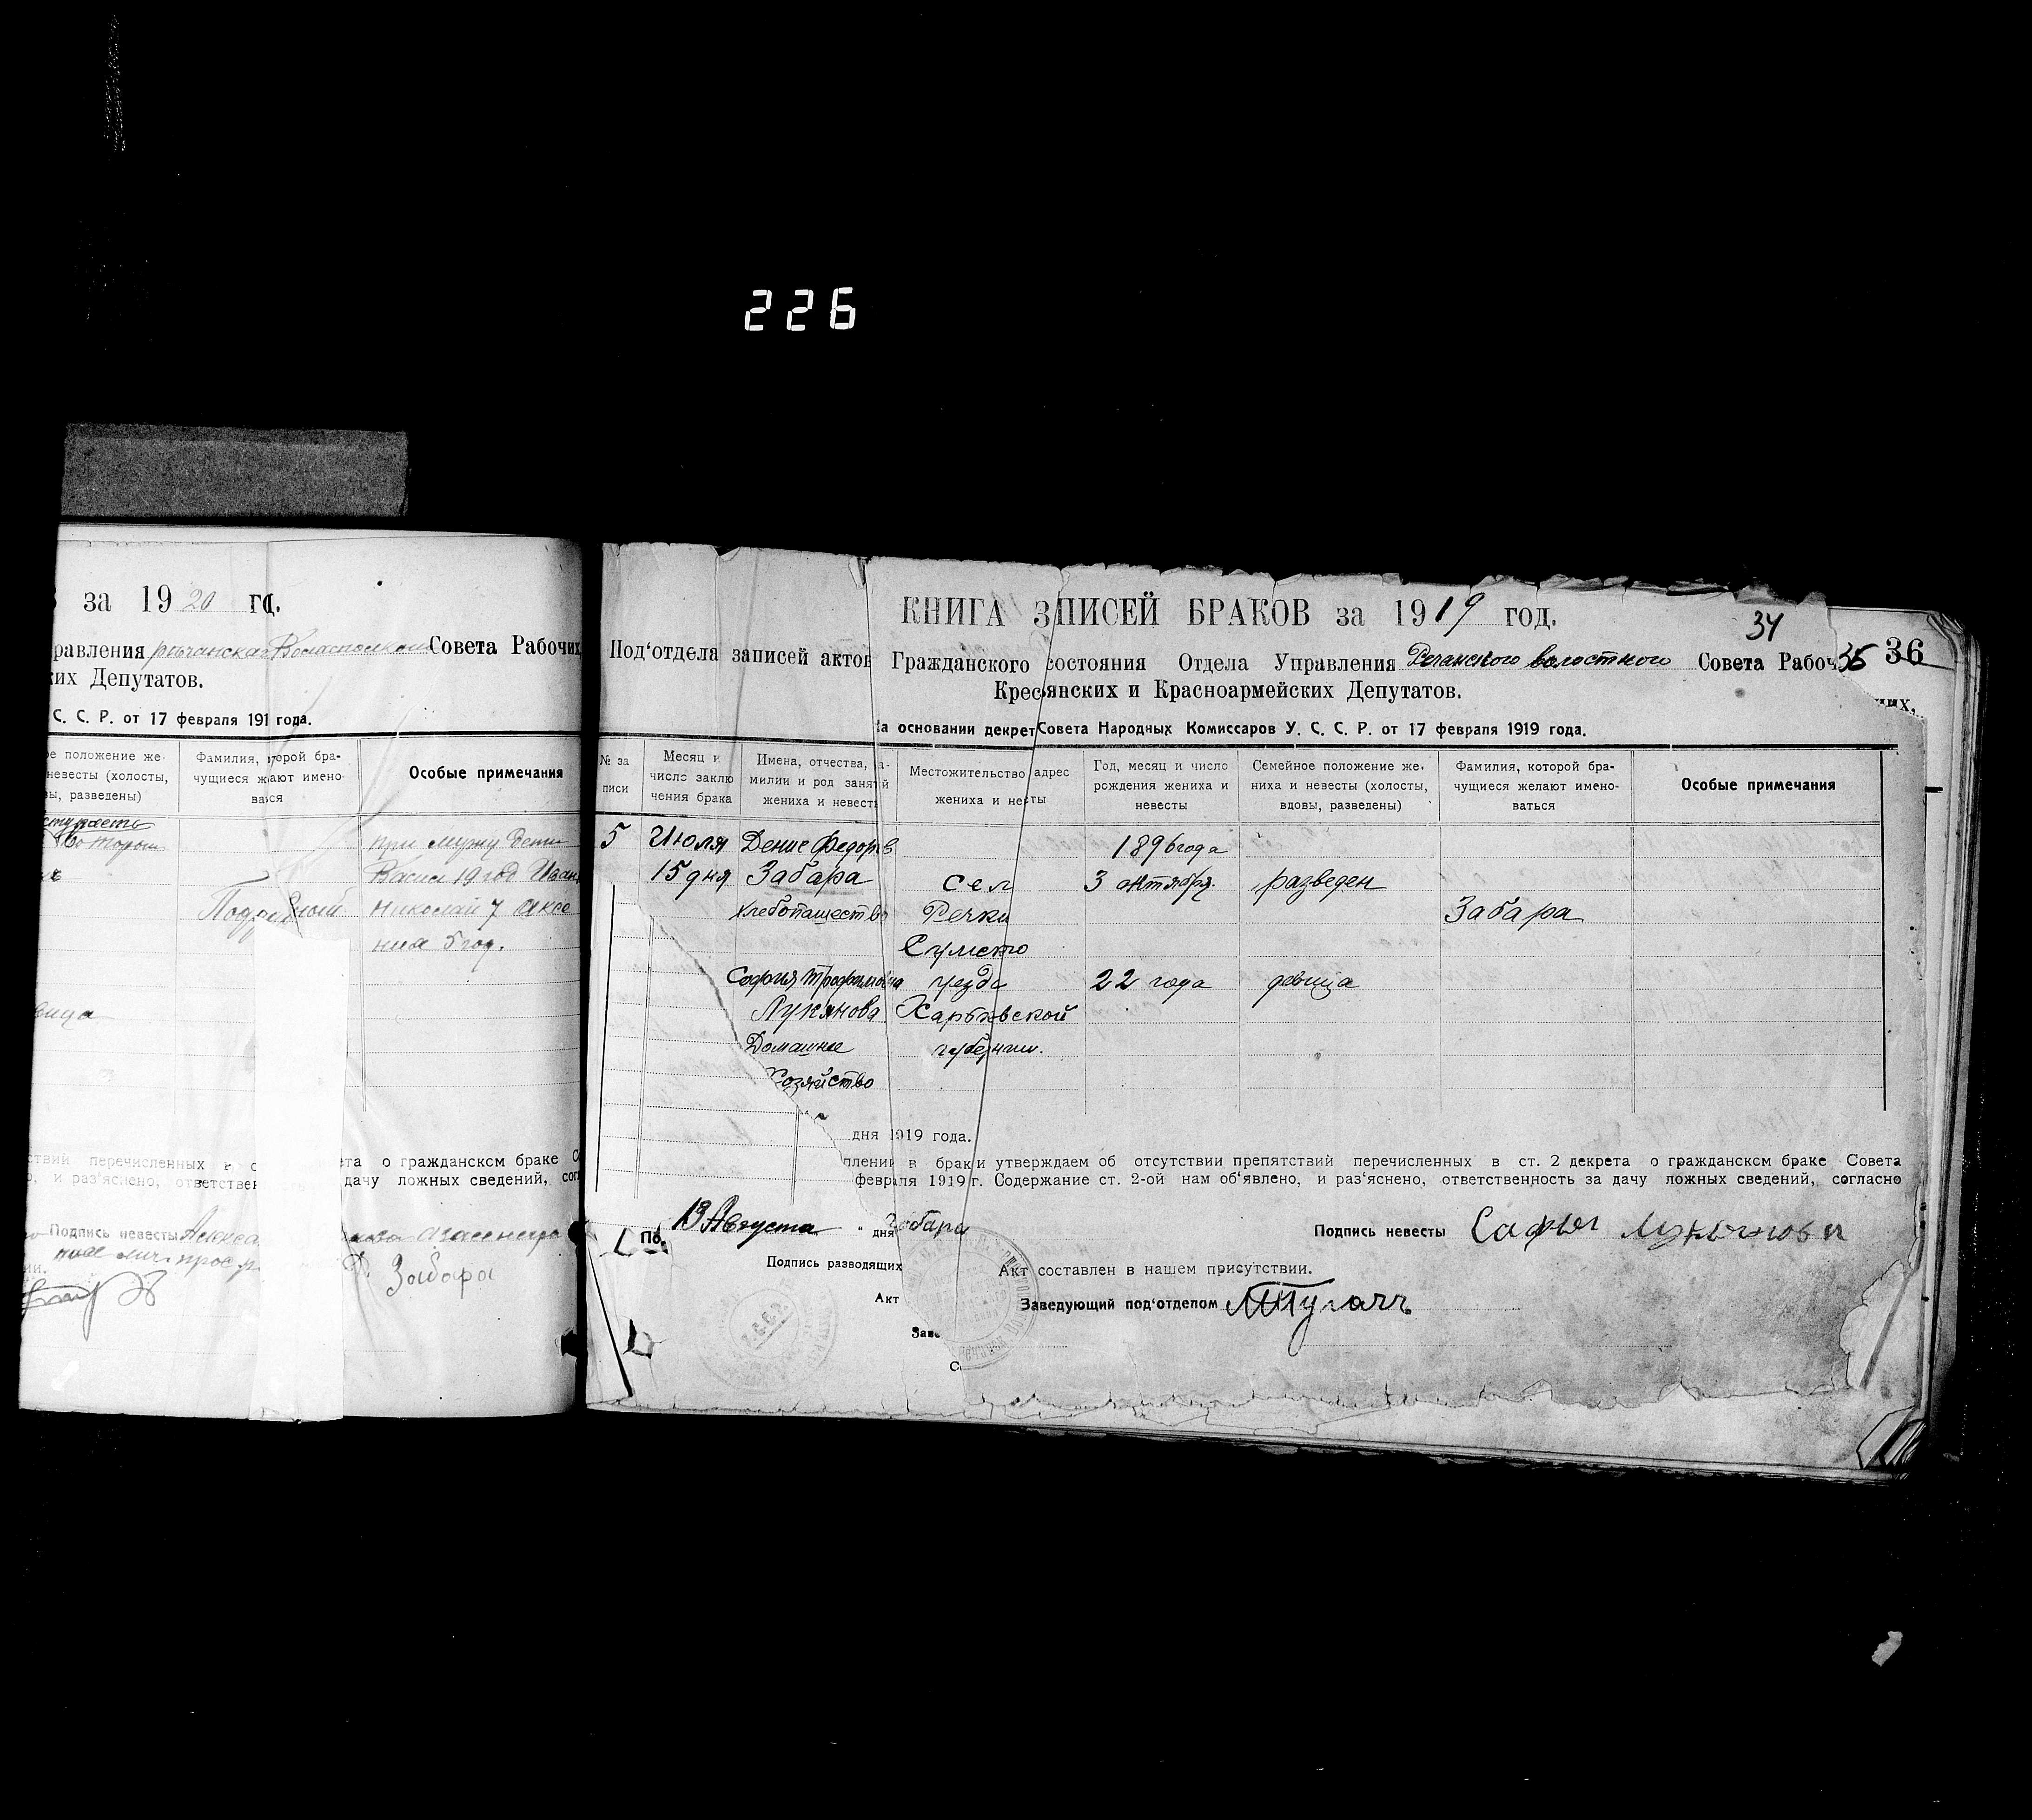 226
за 1920 го.
равления Совета Рабочих
ких Депутатов.
С. С. Р. от 17 февраля 191 года.
ое положение же-
невесты (холосты,
вы, разведены)
Фамилия, которой бра-
чущиеся желают имено-
ваться
Особые примечания
ступаеть
во второй
при мужу Дети
Васил 19 год Иван
Подрезной Николай 7 Аксе
ния 5 год.
вица
ствий перечисленных в с ета о гражданском браке С
о, и раз'яснено, ответствен дачу ложных сведений, сог
Подпись невесты Алекса
Д. Забара
34
35 36
КНИГА ЗПИСЕЙ БРАКОВ за 1919 год.
Под'отдела записей актов Гражданского состояния Отдела Управления Речанского волостного Совета Рабоч
их,
Кресянских и Красноармейских Депутатов.
а основании декрет Совета Народных Комиссаров У. С. С. Р. от 17 февраля 1919 года.
№ за
писи
Месяц и
число заклю
чения брака
Имена, отчества, а-
милии и род занятий
жениха и невесты
Местожительство адрес
жениха и несты
Год, месяц и число
рождения жениха и
невесты
Семейное положение же-
ниха и невесты (холосты,
вдовы, разведены)
Фамилия, которой бра-
чущиеся желают имено-
ваться
Особые примечания
5 Июля Денис Федоров 1896 года
15 дня Забара сел 3 октября. разведен
хлебопашество Речки Забара
Сумского
София Трофимовна уезда 22 года девица
Лукянова Харьковской
Домашнее губернии.
Хозяйство
дня 1919 года.
плении в брак и утверждаем об отсутствии препятствий перечисленных в ст. 2 декрета о гражданском браке Совета
февраля 1919 г. Содержание ст. 2-ой нам об'явлено, и раз'яснено, ответственность за дачу ложных сведений, согласно
По 13 Августа " дня Забара Подпись невесты Софья Лукьянова
Подпись разводящих Акт составлен в нашем присутствии.
Акт Заведующий под'отделом
Заве
С